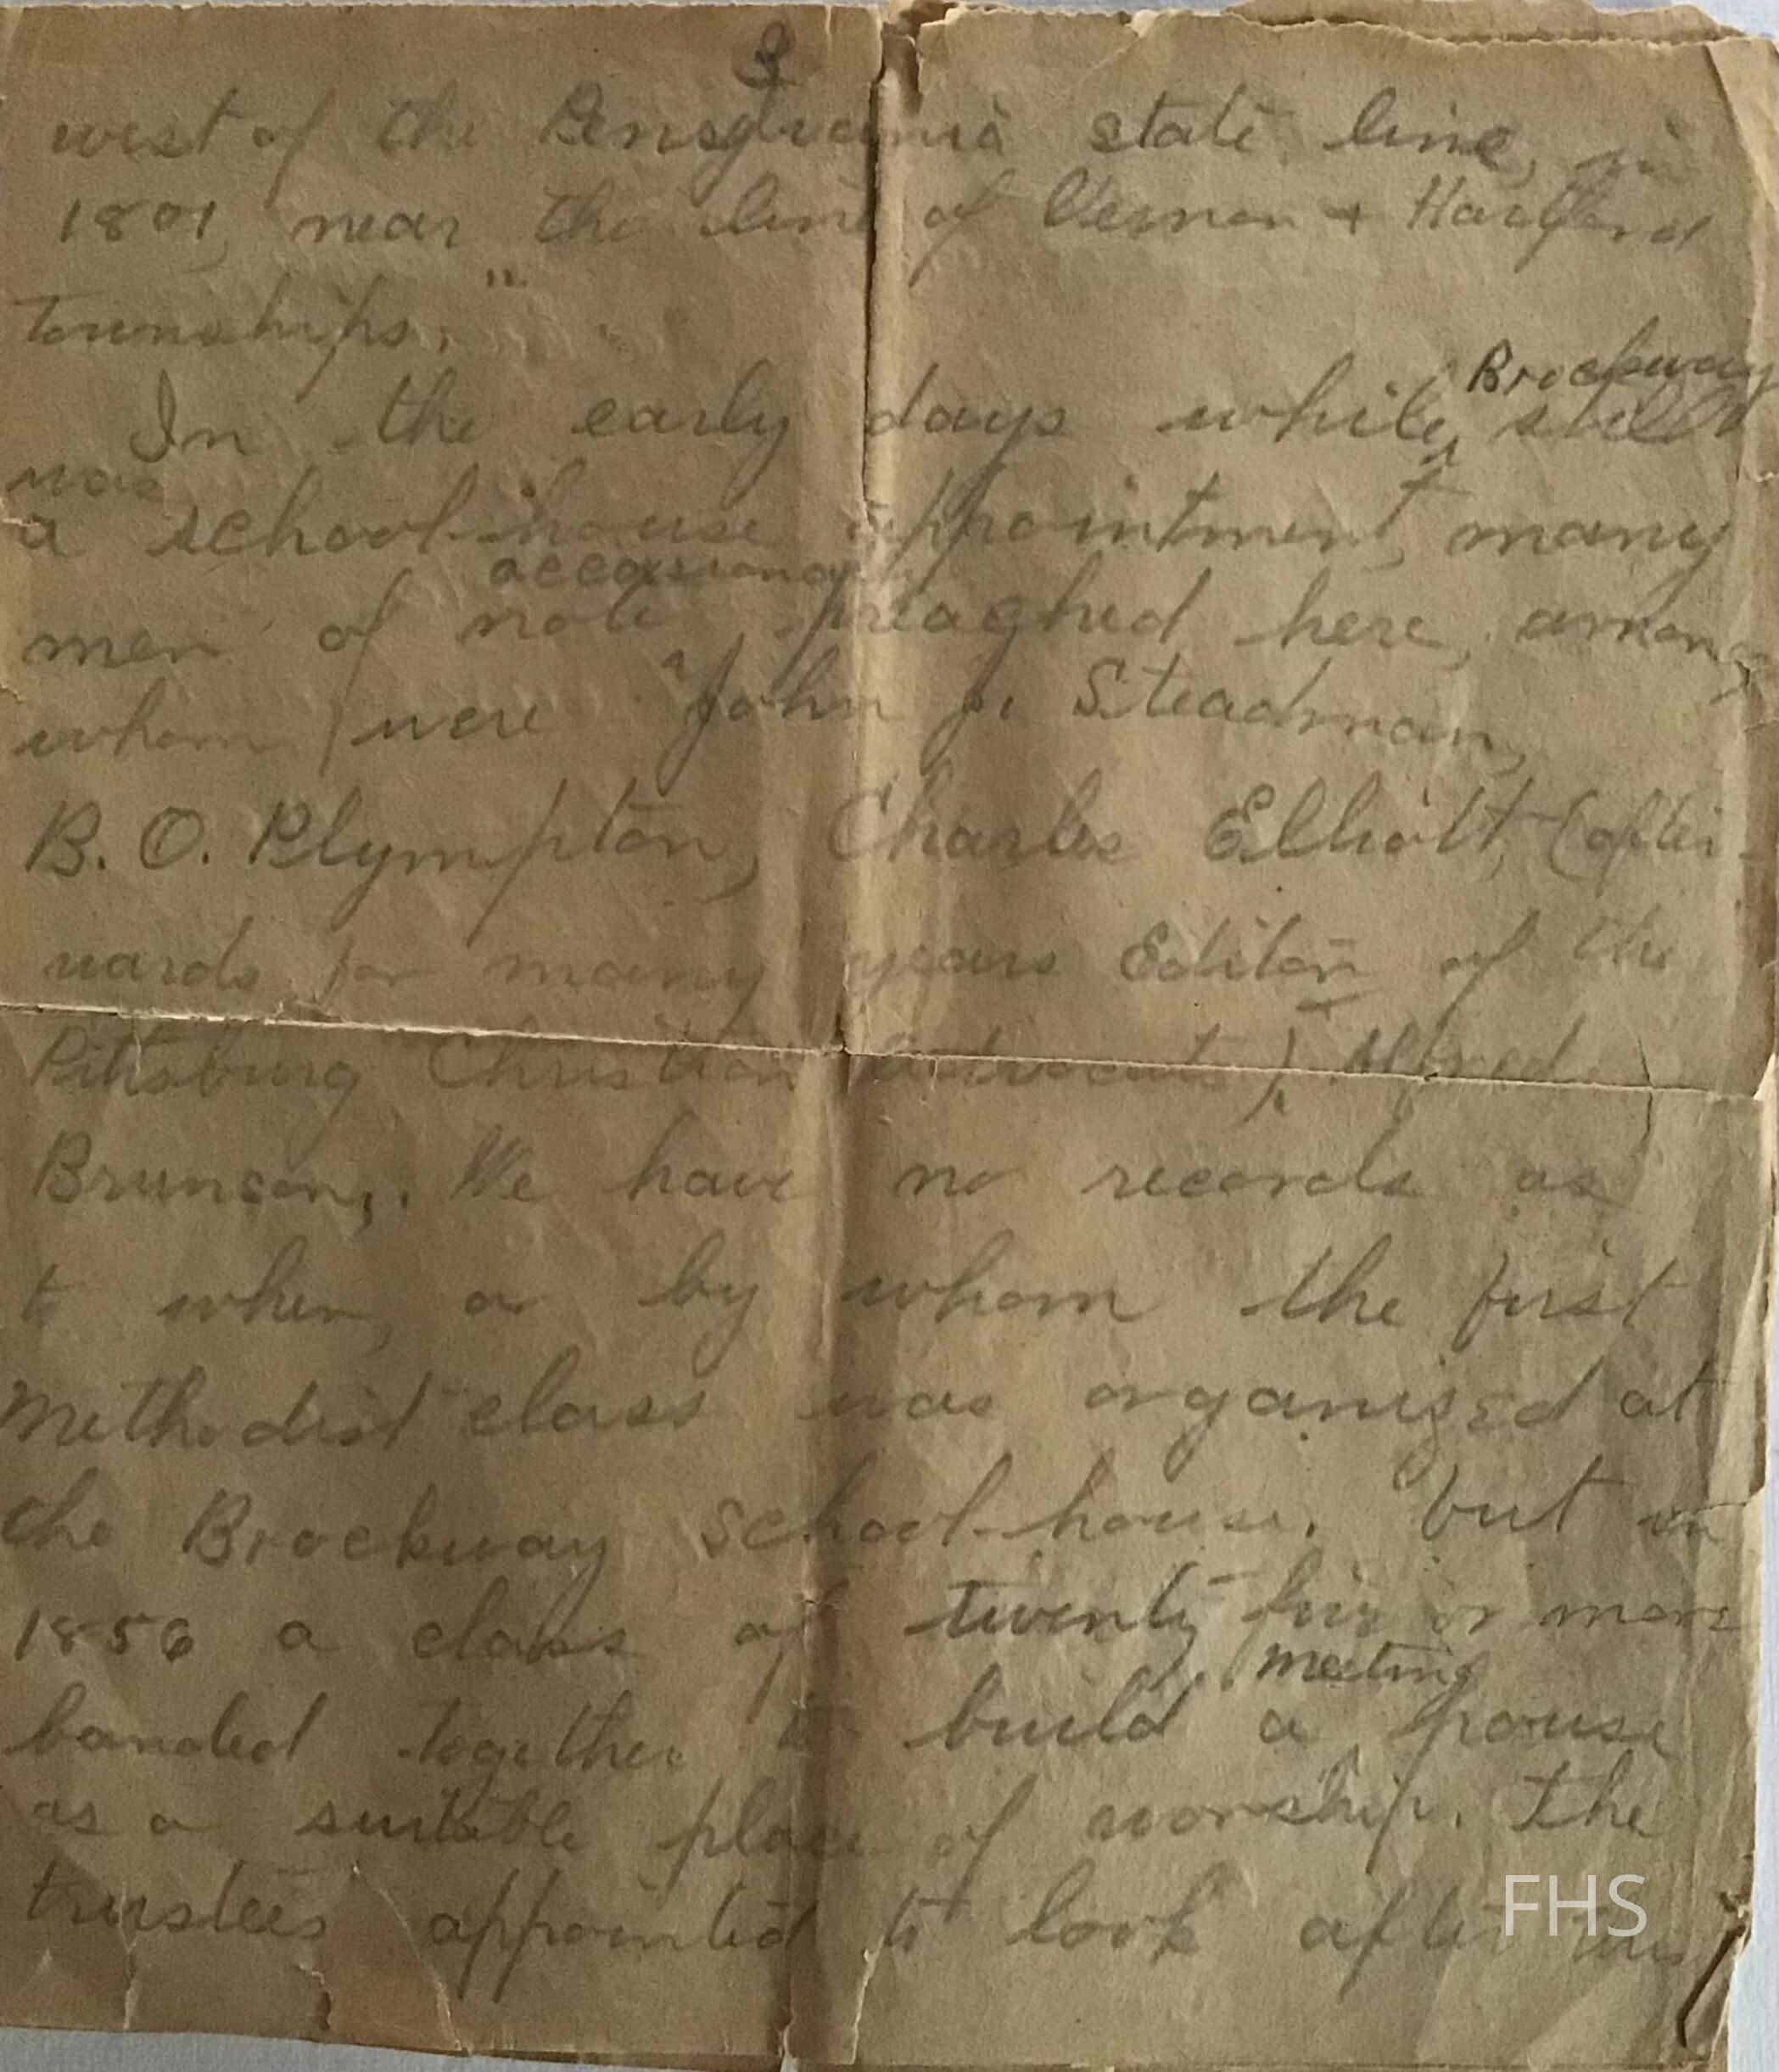 3
west of the Pensylvania state line, in
1801, near the line of Vernon + Hartford
townships."
Brockway
In the early days while still
was
a school-house appointment, many
occasionally
men of note preached here, among
whom were John J. Steadman,
B. O. Plympton, Charles Elliott, (after-
wards for many years Editor of the
Pittsburg Christian Advocate) Alfred
Brunson,. We have no records as
to when, or by whom the first
Methodist class was organized at
the Brockway school-house. but in
1856 a class of twenty five or more
meeting
banded together to build a house
as a suitable place of worship. The
trustees appointed to look after this
FHS